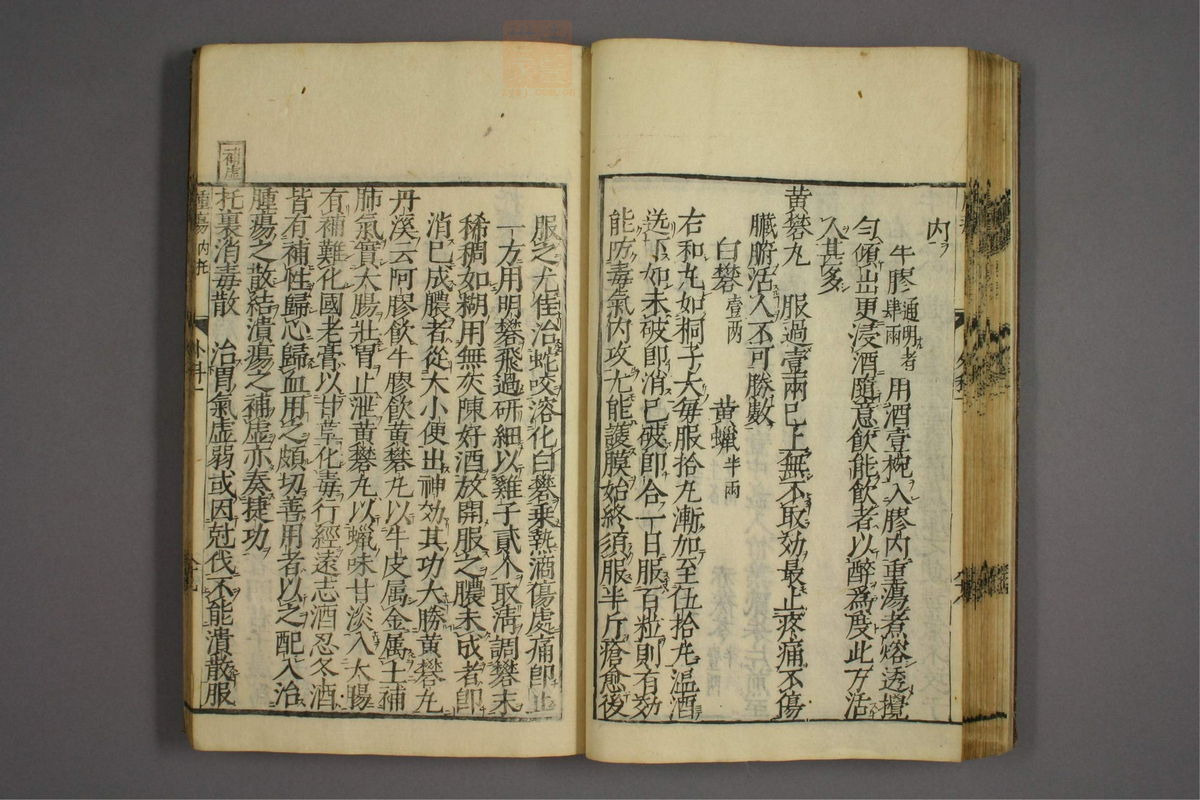 内
牛膠 通明者肆兩 用酒壹椀入膠內重湯煮熔透攪
勻傾出更浸酒隨意飲能飲者以醉爲度此方活
人甚多
黃礬丸 服過壹兩已上無不取効最止疼痛不傷
臟腑活人不可勝數
白礬 壹兩 黃蠟 半兩
右和丸如桐子大每服拾丸漸加至伍拾丸溫酒
送下如未破即消已破即合一日服百粒則有効
能防毒氣內攻尤能護膜始終須服半斤瘡愈後
服之尤佳治蛇咬溶化白礬乘熱滴傷處痛即止
一方用明礬飛過研細以雞子貳个取淸調礬末
稀稠如糊用無灰陳好酒放開服之膿未成者即
消已成膿者從大小便出神効其功大勝黃礬丸
丹溪云阿膠飲牛膠飲黃礬丸以牛皮属金属土補
肺氣實大腸壯胃止泄黃礬丸以蠟味甘淡入大腸
有補難化國老膏以甘草化毒行經遠志酒忍冬酒
皆有補性歸心歸血用之頗切善用者以之配入治
腫瘍之散結潰瘍之補虛亦奏捷功
補虛
托裏消毒散 治胃氣虛弱或因尅伐不能潰散服
腫瘍 內托